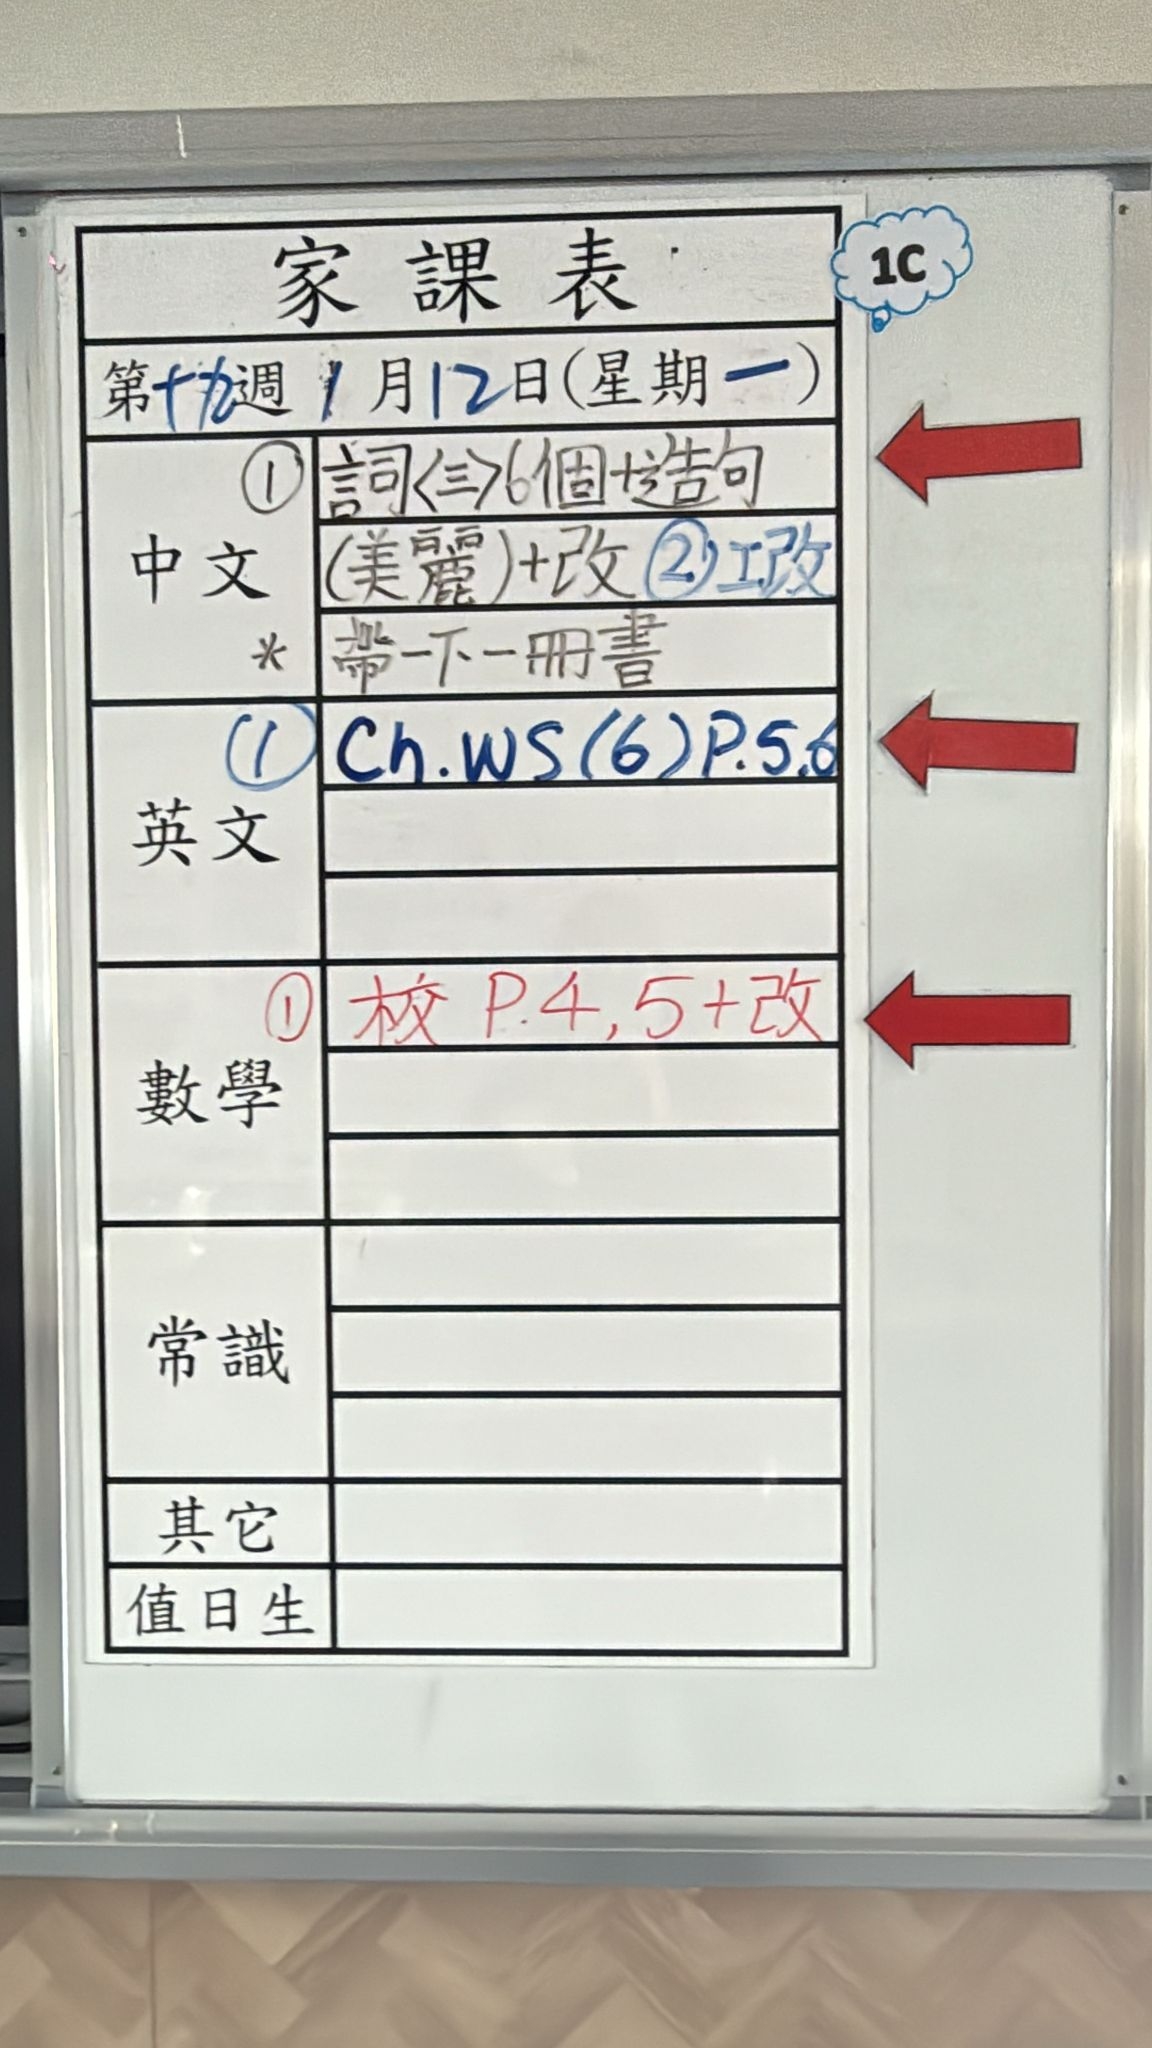 家課表
1C
第十九週 1月12日(星期一)
中文
① 詞〈三〉6個+造句
(美麗)+改 ②工改
* 帶一下一冊書
英文
① Ch.WS(6)P.5,6
數學
① 校 P.4,5+改
常識
其它
值日生